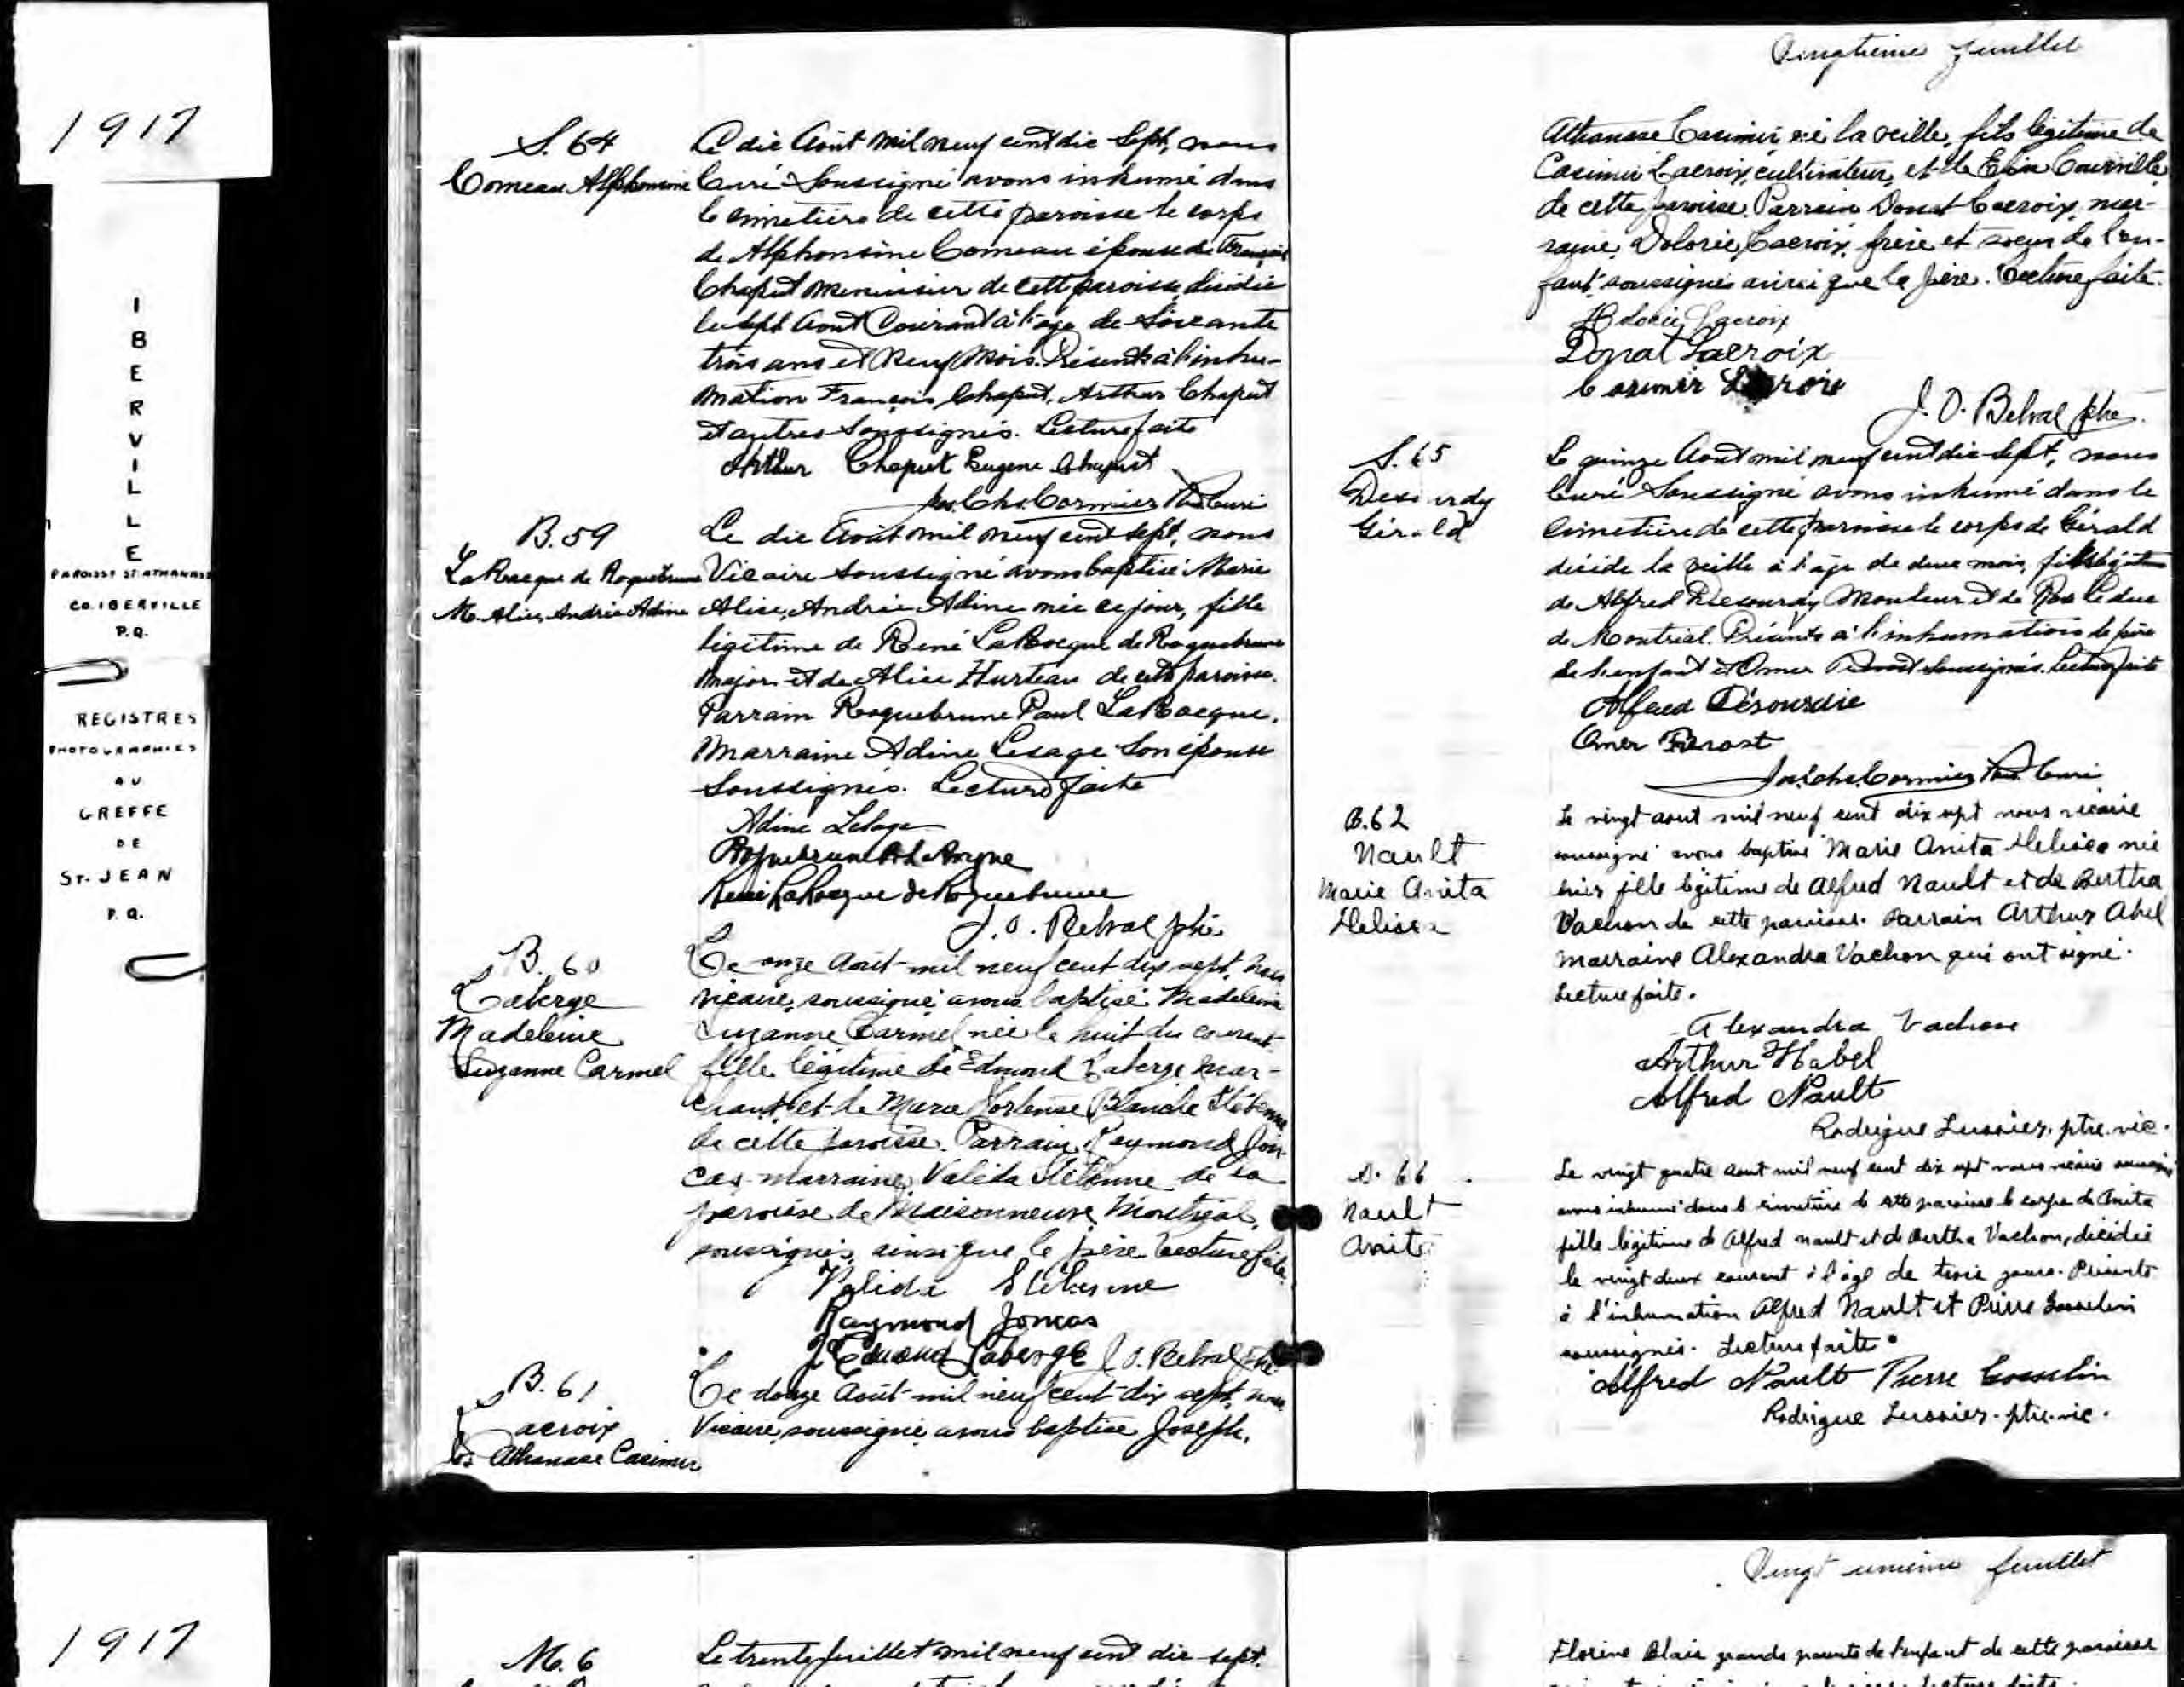 1917
IBERVILLE
PAROISSE ST. ATHANASE
CO. IBERVILLE
P.Q.
REGISTRES
PHOTOGRAPHIÉS
AU
GREFFE
DE
ST. JEAN
P.Q.
S. 64
Comeau Alphonsine
Le dix Août mil neuf cent dix sept, nous
Curé Soussigné avons inhumé dans
le cimetière de cette paroisse le corps
de Alphonsine Comeau épouse de François
Chaput menuisier de cette paroisse, décédée
le sept Aout Courant à l'age de Soixante
trois ans et Neuf Mois. Présents à l'inhu-
mation François Chaput, Arthur Chaput
et autres Soussignés. Lecture faite
Arthur Chaput Eugene Chaput
Jos. Chs. Cormier Ptre Curé
B. 59
LaRocque de Roquebrune
M. Alice Andrée Adine
Le dix Août mil neuf cent sept, nous
Vicaire soussigné avons baptisé Marie
Alice, Andrée Adine née ce jour, fille
légitime de René LaRocque de Roquebrune
Major et de Alice Hurteau de cette paroisse.
Parrain Roquebrune Paul LaRocque.
Marraine Adine Lesage Son épouse
Soussignés. Lecture faite
Adine Lesage
René LaRocque de Roquebrune
J. O. Belval ptre
B. 60
Laberge
Madeleine
Suzanne Carmel
Le onze Août mil neuf cent dix sept, nous
vicaire, soussigné avons baptisé Madeleine
Suzanne Carmel née le huit du courant
fille légitime de Edmond Laberge mar-
chand et de Marie Hortense Blanche Stébenne
de cette paroisse. Parrain, Raymond Jon-
cas, marraine, Valida Stébenne de la
paroisse de Maisonneuve, Montréal,
soussignés, ainsi que le père. Lecture faite.
Valida Stébenne
Raymond Joncas
J Edmond Laberge J. O. Belval ptre
B. 61
Lacroix
Jos Athanase Casimir
Le douze Août mil neuf cent dix sept, nous
Vicaire, soussigné avons baptisé Joseph,
Vingtième feuillet
Athanase Casimir né la veille, fils légitime de
Casimir Lacroix, cultivateur, et de Courville,
de cette paroisse. Parrain Donat Lacroix, mar-
raine, Dolorie Lacroix, frère et soeur de l'en-
fant, soussignés ainsi que le père. Lecture faite.
Lacroix
Donat Lacroix
Casimir Lacroix
J. O. Belval ptre.
S. 65
Desourdy
Gérald
Le quinze Aout mil neuf cent dix-sept, nous
Curé Soussigné avons inhumé dans le
Cimetière de cette paroisse le corps de Gérald
décédé la veille à l'âge de deux mois, fils légitime
de Alfred Desourdy Mouleur et de Rose Leduc
de Montréal. Présents à l'inhumation le père
de l'enfant et Omer soussignés. Lecture faite
Alfred Désourdie
Omer
Jos. Chs. Cormier Ptre. Curé
B. 62
Nault
Marie Anita
Le vingt aout mil neuf cent dix sept nous vicaire
soussigné avons baptisé Marie Anita née
hier fille légitime de Alfred Nault et de Bertha
Vachon de cette paroisse. Parrain Arthur Abel
marraine Alexandra Vachon qui ont signé.
Lecture faite.
Alexandra Vachon
Arthur Habel
Alfred Nault
Rodrigue Lussier. ptre. vic.
S. 66
Nault
Anita
Le vingt quatre aout mil neuf cent dix sept nous vicaire soussigné
avons inhumé dans le cimetière de cette paroisse le corps de Anita
fille légitime de Alfred Nault et de Bertha Vachon, décédée
le vingt deux courant à l'âge de trois jours. Présents
à l'inhumation Alfred Nault et Pierre Gosselin
soussignés. Lecture faite.
Alfred Nault Pierre Gosselin
Rodrigue Lussier. ptre. vic.
1917
M. 6
Le trente Juillet mil neuf cent dix-sept.
Vingt unième feuillet
Florine Blair grands parents de l'enfant de cette paroisse